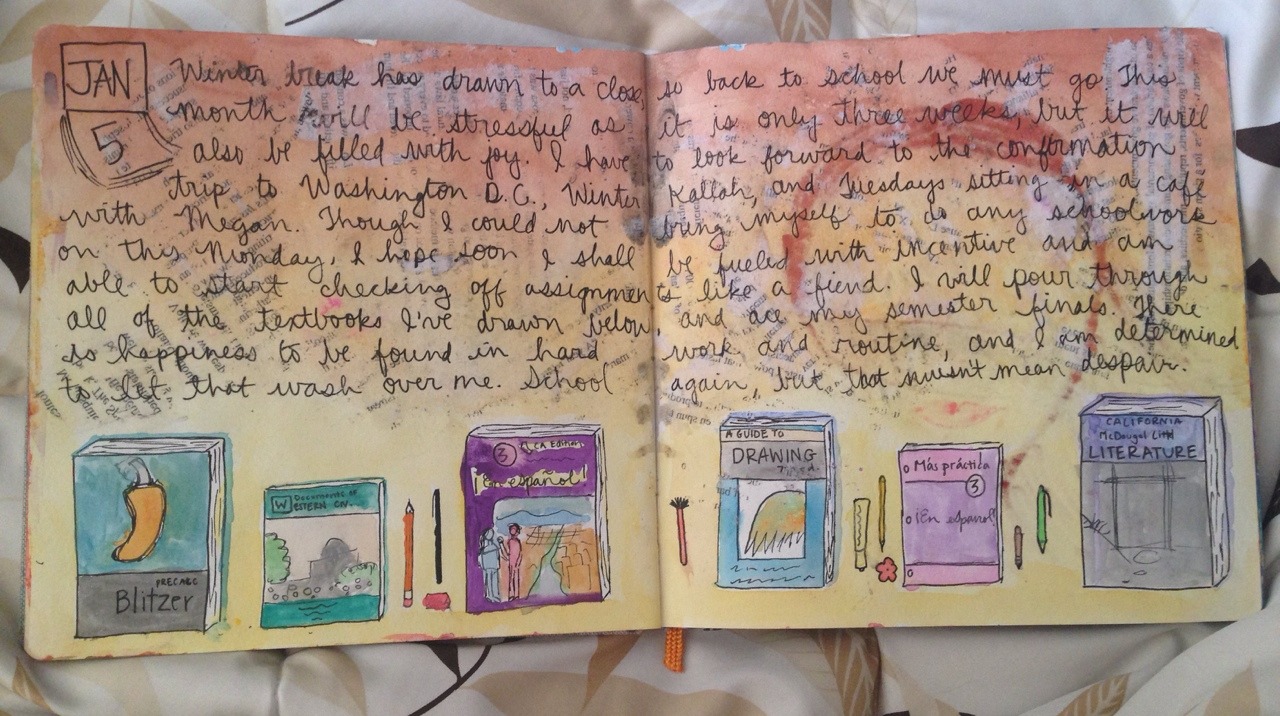 JAN
5
Winter break has drawn to a close, so back to school we must go This
month will be stressful as it is only three weeks, but it will
also be filled with joy. I have to look forward to the confirmation
trip to Washington D.C., Winter Kallah, and Tuesdays sitting in a cafe
with Megan. Though I could not bring myself to do any schoolwork
on this Monday, I hope soon I shall be fueled with incentive and am
able to start checking off assignments like a fiend. I will pour through
all of the textbooks I've drawn below, and ace my semester finals. There
so happiness to be found in hard work and routine, and I am determined
to let that wash over me. School again, but that musn't mean despair.
PRECALC
Blitzer
W Documents of
ESTERN CIV.
3 CA Edition
¡En español!
A GUIDE TO
DRAWING
7 ed.
Más práctica
3
¡En español!
CALIFORNIA
McDougal Littl
LITERATURE